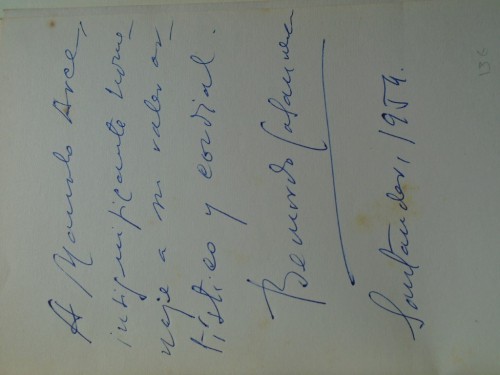 A Manolo Arce,
insignificante home-
naje a su valer ar-
tístico y cordial.
Bernardo Casanueva
Santander, 1954.